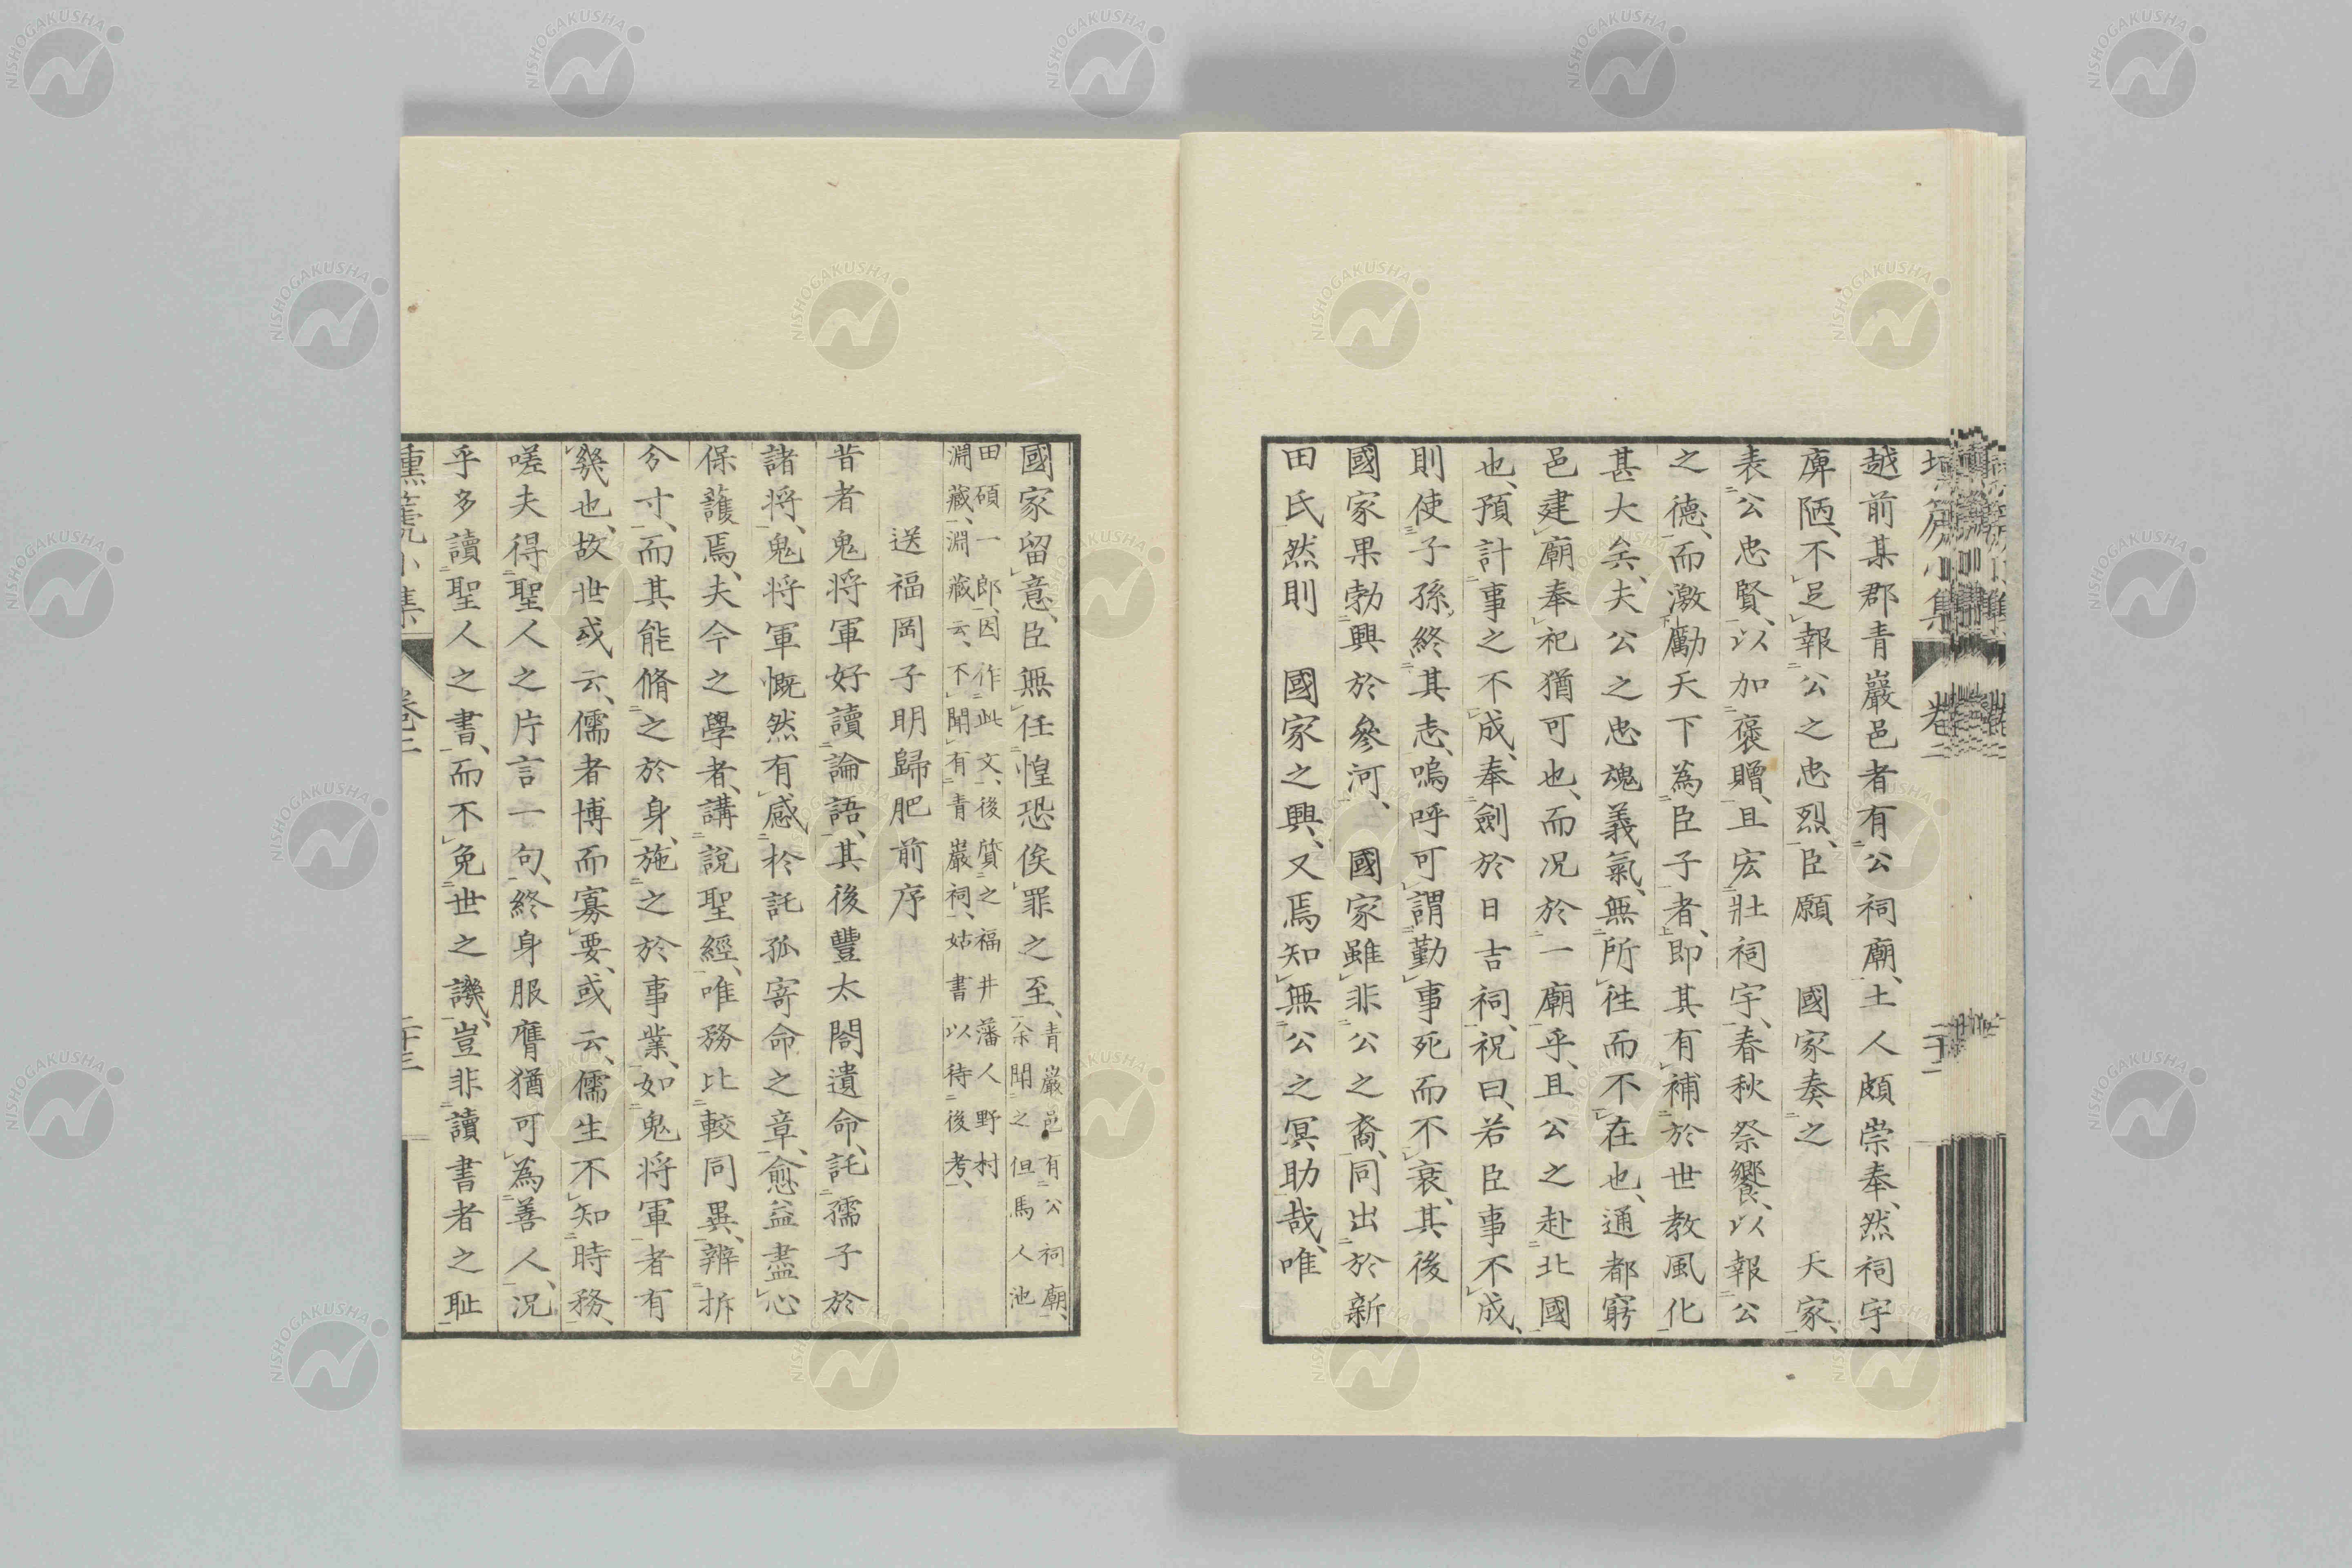 越前某郡青巖邑者有公祠廟、土人頗崇奉、然祠宇
庳陋、不足報公之忠烈、臣願　國家奏之　天家、
表公忠賢、以加褒贈、且宏壯祠宇、春秋祭饗、以報公
之德、而激勵天下為臣子者、即其有補於世教風化
甚大矣、夫公之忠魂義氣、無所往而不在也、通都窮
邑建廟奉祀猶可也、而況於一廟乎、且公之赴北國
也、預計事之不成、奉劍於日吉祠、祝曰、若臣事不成、
則使子孫終其志、嗚呼可謂勤事死而不衰、其後
國家果勃興於參河、國家雖非公之裔、同出於新
田氏然則　國家之興、又焉知無公之冥助哉、唯
國家留意、臣無任惶恐俟罪之至、青巖邑有公祠廟、余聞之但馬人池
田碩一郎、因作此文、後質之福井藩人野村
淵藏、淵藏云、不聞有青巖祠、姑書以待後考、
送福岡子明歸肥前序
昔者鬼將軍好讀論語、其後豐太閤遺命、託孺子於
諸將、鬼將軍慨然有感於託孤寄命之章、愈益盡心
保護焉、夫今之學者、講說聖經、唯務比較同異、辨拆
分寸、而其能脩之於身、施之於事業、如鬼將軍者有
幾也、故世或云、儒者博而寡要、或云、儒生不知時務、
嗟夫得聖人之片言一句、終身服膺猶可為善人、況
乎多讀聖人之書、而不免世之譏、豈非讀書者之耻
卷二
NISHOGAKUSHA